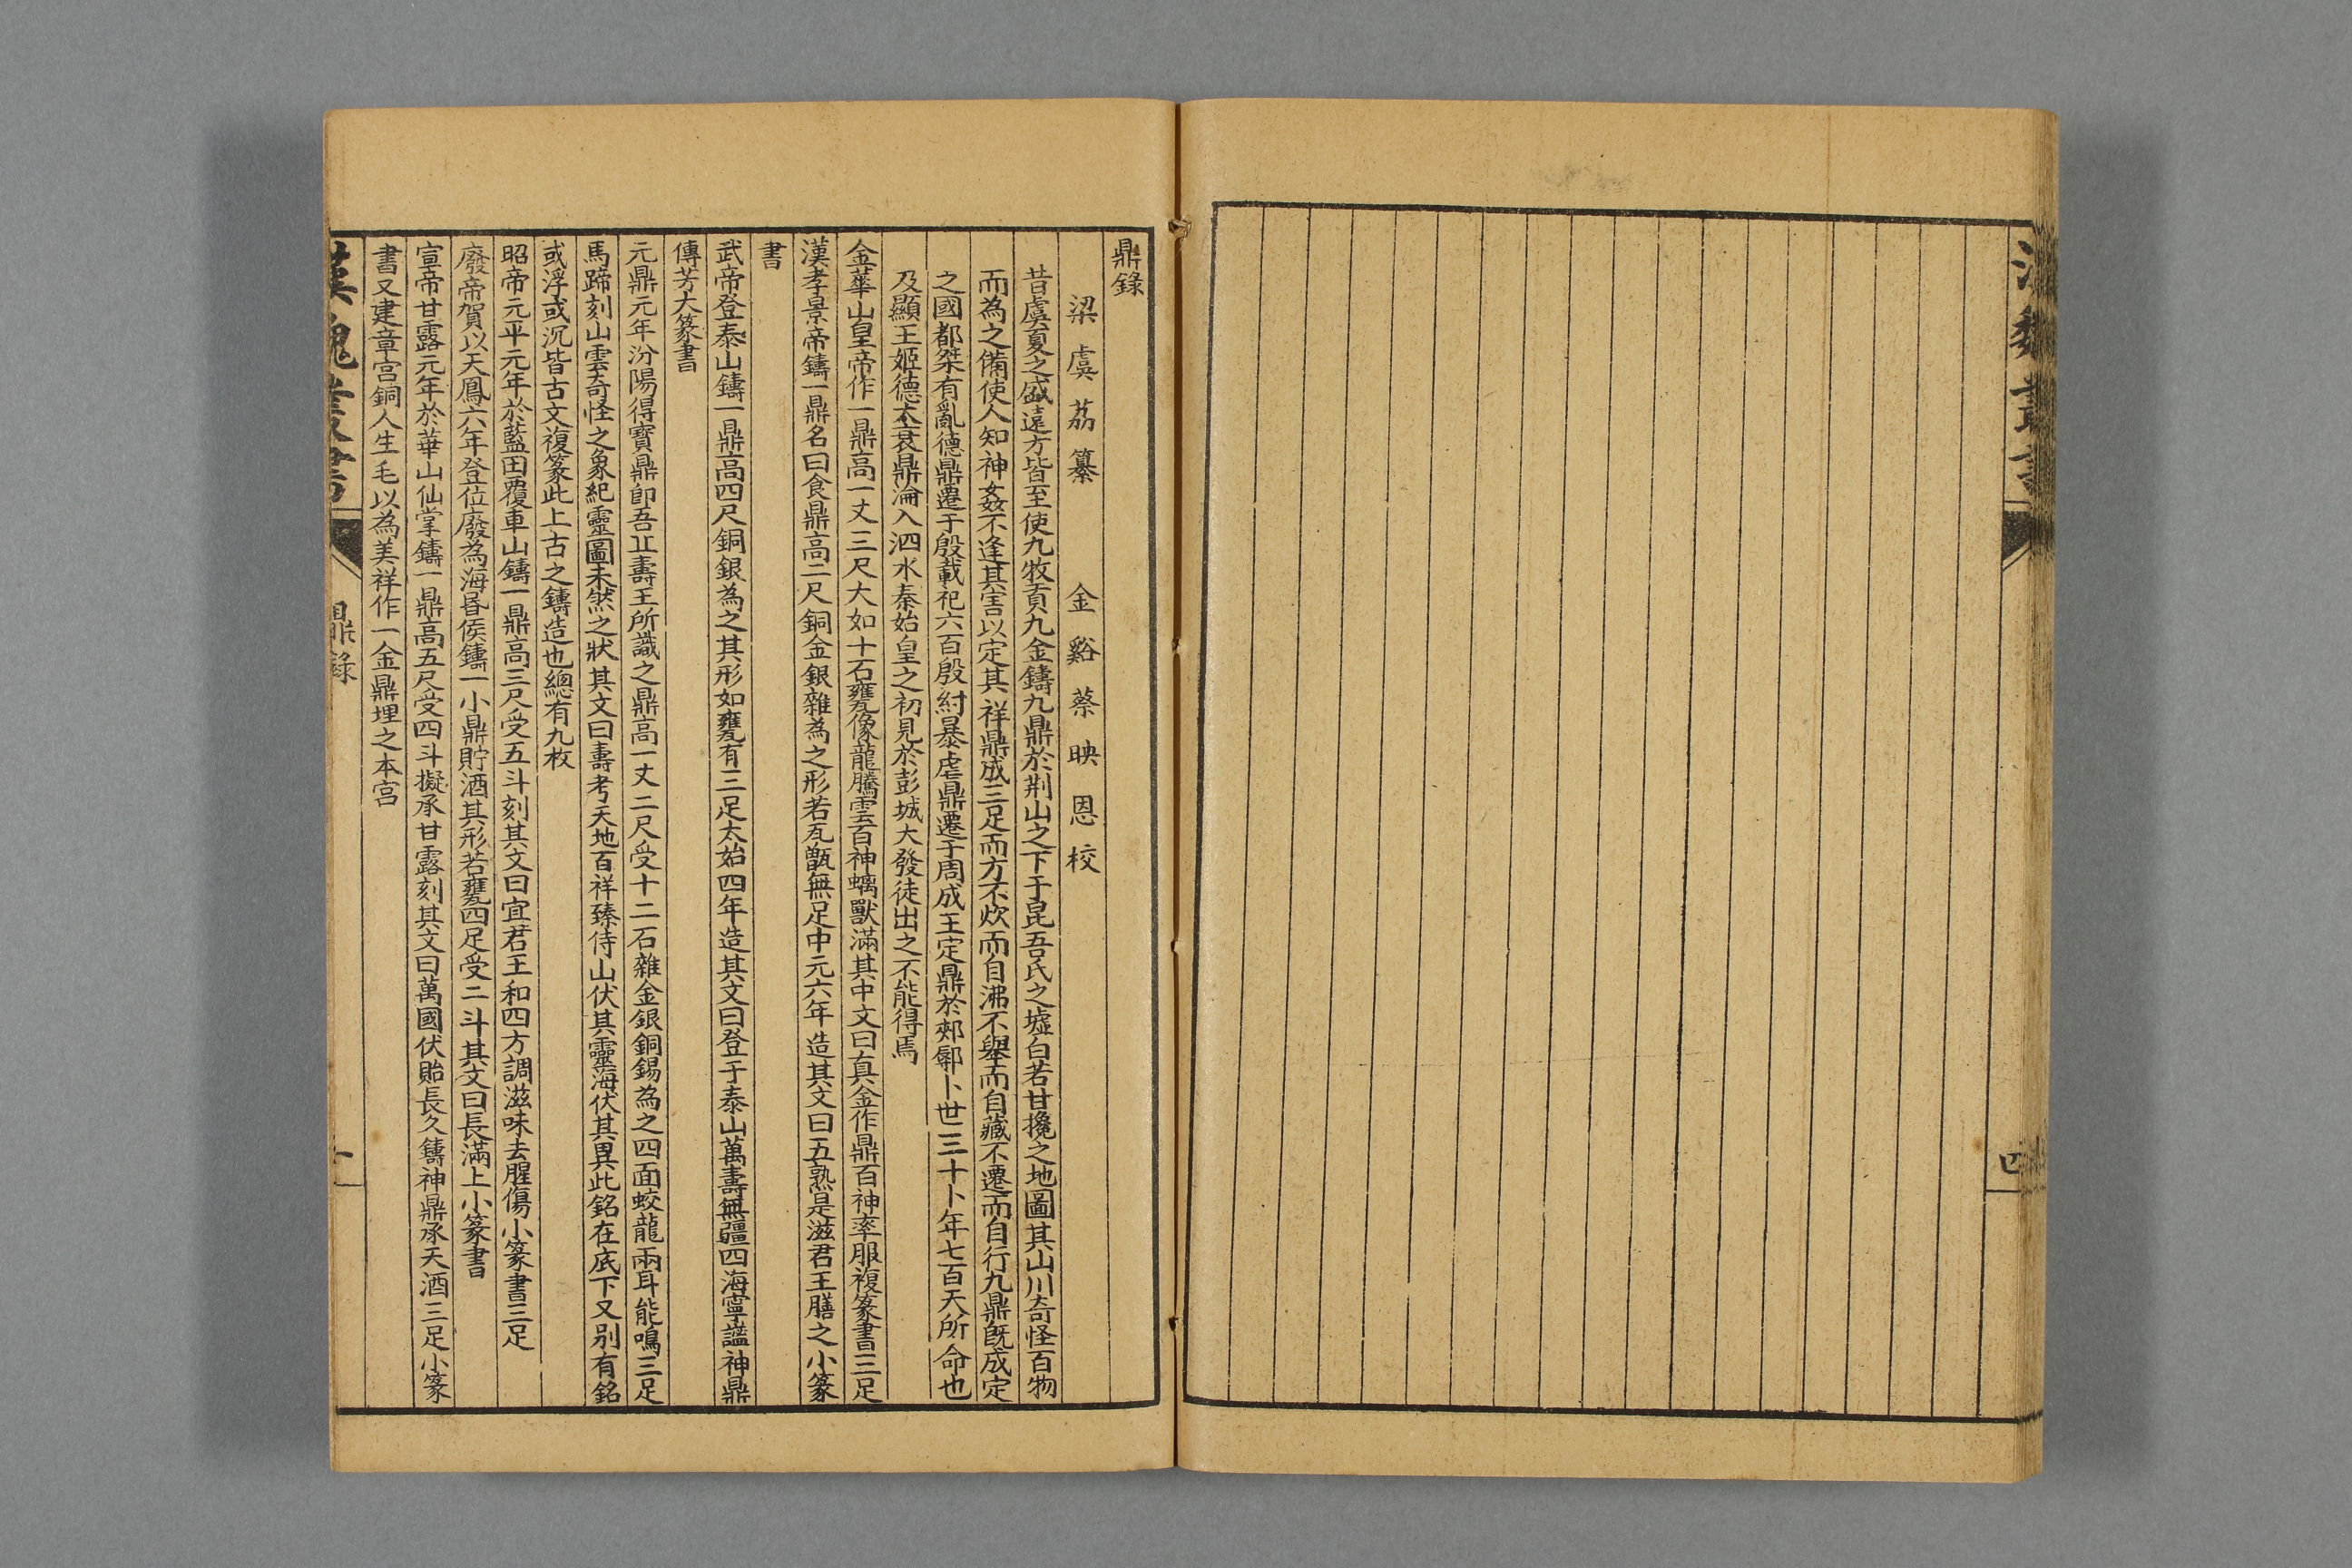 四
鼎錄
梁虞荔纂 金谿蔡映恩校
昔虞夏之盛遠方皆至使九牧貢九金鑄九鼎於荆山之下于昆吾氏之墟白若甘攙之地圖其山川奇怪百物
而為之備使人知神姦不逢其害以定其祥鼎成三足而方不炊而自沸不舉而自藏不遷而自行九鼎既成定
之國都桀有亂德鼎遷于殷載祀六百殷紂暴虐鼎遷于周成王定鼎於郟鄏卜世三十卜年七百天所命也
及顯王姬德大衰鼎淪入泗水秦始皇之初見於彭城大發徒出之不能得焉
金華山皇帝作一鼎高一丈三尺大如十石甕像龍騰雲百神螭獸滿其中文曰真金作鼎百神率服複篆書三足
漢孝景帝鑄一鼎名曰食鼎高二尺銅金銀雜為之形若瓦甑無足中元六年造其文曰五熟是滋君王膳之小篆
書
武帝登泰山鑄一鼎高四尺銅銀為之其形如甕有三足太始四年造其文曰登于泰山萬壽無疆四海寧謐神鼎
傳芳大篆書
元鼎元年汾陽得寶鼎即吾丘壽王所識之鼎高一丈二尺受十二石雜金銀銅錫為之四面蛟龍兩耳能鳴三足
馬蹄刻山雲奇怪之象紀靈圖未然之狀其文曰壽考天地百祥臻侍山伏其靈海伏其異此銘在底下又別有銘
或浮或沉皆古文複篆此上古之鑄造也總有九枚
昭帝元平元年於藍田覆車山鑄一鼎高三尺受五斗刻其文曰宜君王和四方調滋味去腥傷小篆書三足
廢帝賀以天鳳六年登位廢為海昏侯鑄一小鼎貯酒其形若甕四足受二斗其文曰長滿上小篆書
宣帝甘露元年於華山仙掌鑄一鼎高五尺受四斗擬承甘露刻其文曰萬國伏貽長久鑄神鼎承天酒三足小篆
書又建章宫銅人生毛以為美祥作一金鼎埋之本宫
漢魏叢書 鼎錄 一